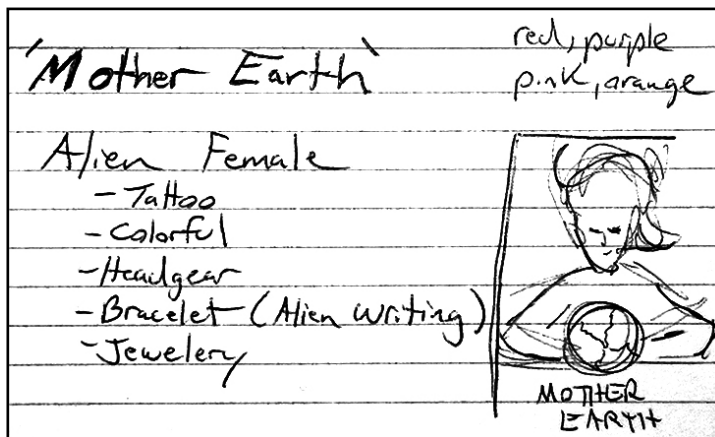 'Mother Earth'
red, purple
pink, orange
Alien Female
- Tattoo
- Colorful
- Headgear
- Bracelet (Alien Writing)
- Jewelery
MOTHER
EARTH